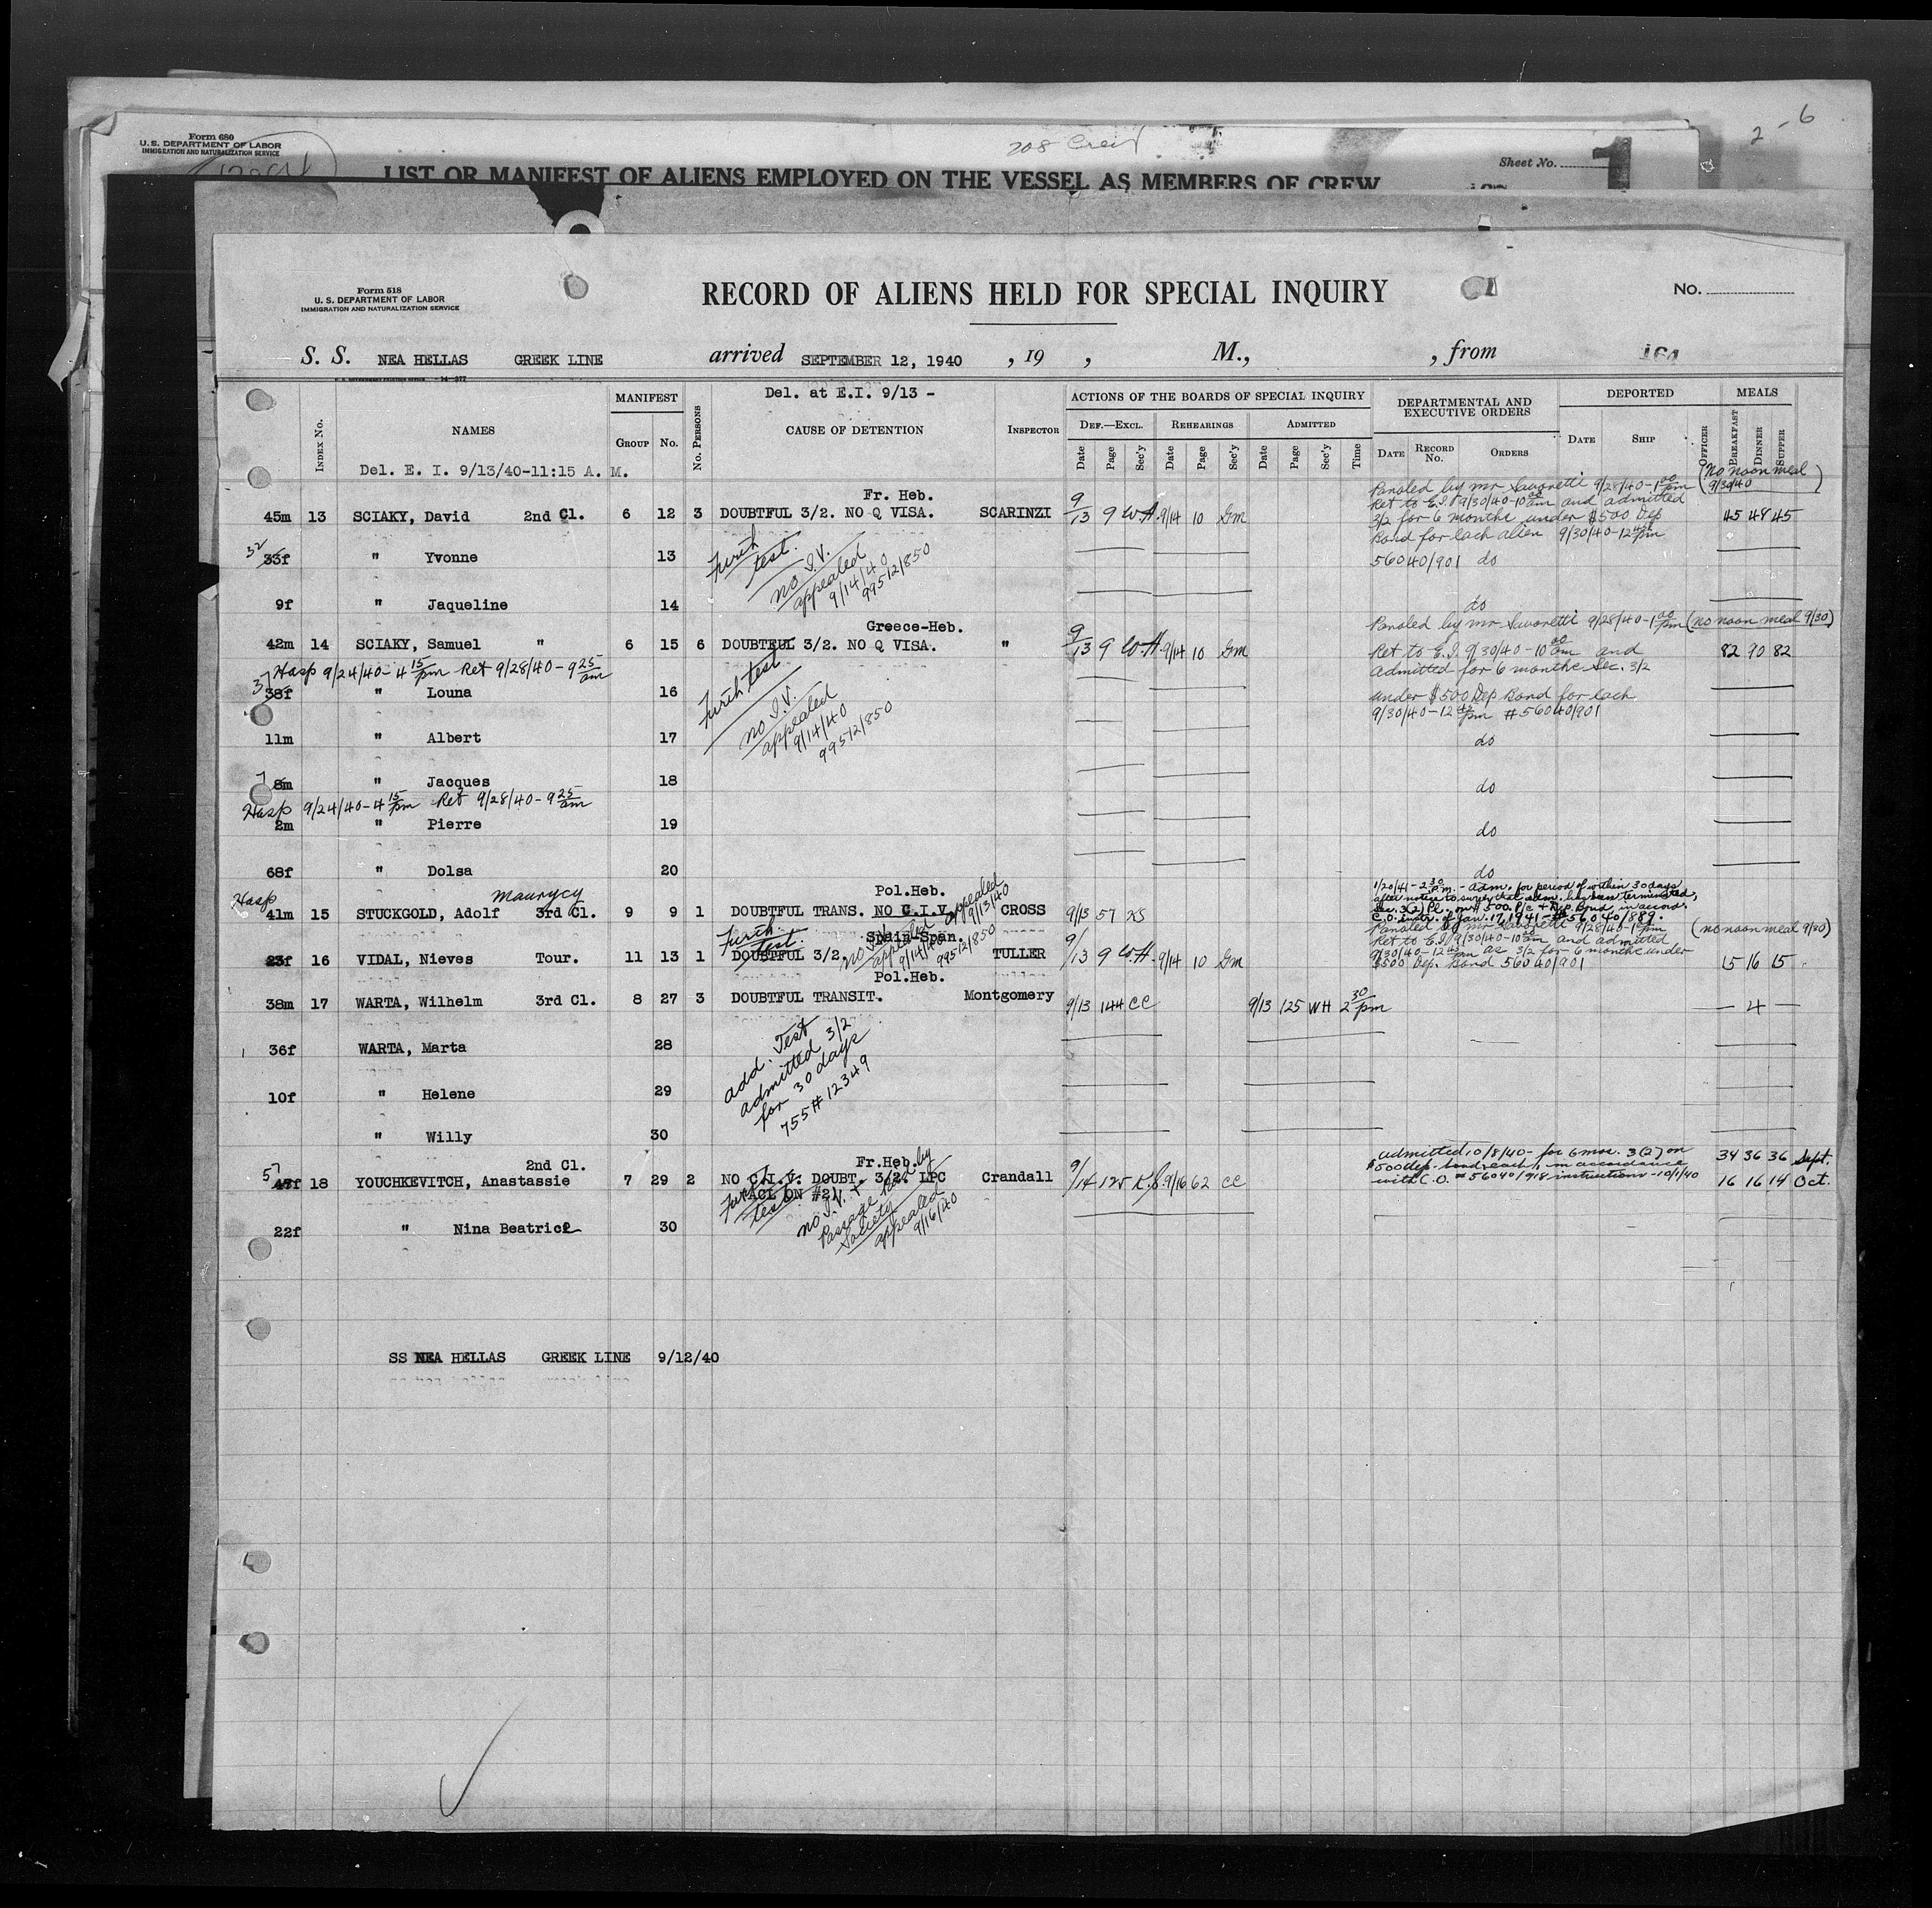 2-6
Form 680
U. S. DEPARTMENT OF LABOR
IMMIGRATION AND NATURALIZATION SERVICE
208
Sheet No. 1
LIST OR MANIFEST OF ALIENS EMPLOYED ON THE VESSEL AS MEMBERS OF CREW
Form 518
U. S. DEPARTMENT OF LABOR
IMMIGRATION AND NATURALIZATION SERVICE
RECORD OF ALIENS HELD FOR SPECIAL INQUIRY
No.
S. S. NEA HELLAS GREEK LINE arrived SEPTEMBER 12, 1940 , 19 , M., , from 164
Del. at E.I. 9/13 -
MANIFEST ACTIONS OF THE BOARDS OF SPECIAL INQUIRY DEPARTMENTAL AND EXECUTIVE ORDERS DEPORTED MEALS
Index No. NAMES Group No. No. Persons CAUSE OF DETENTION Inspector Def.—Excl. Rehearings Admitted
Date Page Sec'y Date Page Sec'y Date Page Sec'y Time Date Record No. Orders Date Ship Officer Breakfast Dinner Supper
Del. E. I. 9/13/40-11:15 A. M.
(No noon meal 9/30/40)
Paroled by Mr Savoretti 9/28/40-1 00 pm
Fr. Heb.
Ret to E.I. 9/30/40-10 00 am and admitted
45m 13 SCIAKY, David 2nd Cl. 6 12 3 DOUBTFUL 3/2. NO Q VISA. SCARINZI 9/13 9 W.H. 9/14 10 Gm 45 48 45
3/2 for 6 months under $500 Dep
Bond for each alien 9/30/40-12 45 pm
32 33f " Yvonne 13 56040/901 do
Furth test.
no I.V.
appealed
9/14/40
99512/850
9f " Jaqueline 14 do
Greece-Heb.
Paroled by Mr Savoretti 9/28/40-1 00 pm (no noon meal 9/30)
42m 14 SCIAKY, Samuel " 6 15 6 DOUBTFUL 3/2. NO Q VISA. " 9/13 9 W.H. 9/14 10 Gm 82 90 82
Ret to E.I. 9/30/40-10 00 am and
Admitted for 6 months Sec. 3/2
Hosp 9/24/40-4 15 pm Ret 9/28/40-9 25 am
37 38f " Louna 16
under $500 Dep Bond for each
9/30/40-12 45 pm #56040/901
Furth test
no I.V.
appealed
9/14/40
99512/850
11m " Albert 17 do
7 8m " Jacques 18 do
Hosp 9/24/40-4 15 pm Ret 9/28/40-9 25 am
2m " Pierre 19 do
68f " Dolsa 20 do
Hosp Maurycy Pol.Heb. appealed 9/13/40
41m 15 STUCKGOLD, Adolf 3rd Cl. 9 9 1 DOUBTFUL TRANS. NO C.I.V. CROSS 9/13 57 KS
1/20/41-2 30 P.m.-adm. for period of within 30 days
after notice to surety that adm. has been terminated,
Sec. 3(2) Pl. on $500 P/c + Dep. Bond in accord.
C.O. instr. of Jan. 17, 1941-#56040/889.
Paroled by Mr Savoretti 9/28/40-1 00 pm (no noon meal 9/30)
Spain-Span.
Ret to E.I. 9/30/40-10 00 am and admitted
23f 16 VIDAL, Nieves Tour. 11 13 1 DOUBTFUL 3/2. TULLER 9/13 9 W.H. 9/14 10 Gm 15 16 15
9/30/40-12 45 pm as 3/2 for 6 months under
$500 Dep. Bond 56040/901
Furth. test.
no I.V.
appealed
9/14/40
99512/850
Pol.Heb.
38m 17 WARTA, Wilhelm 3rd Cl. 8 27 3 DOUBTFUL TRANSIT. Montgomery 9/13 144 CC 9/13 125 WH 2 30 pm — 4 —
36f WARTA, Marta 28
add. Test
admitted 3/2
for 30 days
755#12349
10f " Helene 29
" Willy 30
2nd Cl. Fr.Heb.
57 47f 18 YOUCHKEVITCH, Anastassie 7 29 2 NO C.I.V. DOUBT. 3/2. LPC Crandall 9/14 125 K.S. 9/16 62 CC
(ACL ON #2)
admitted 10/8/40- for 6 mos. 3(2) on 34 36 36 Sept.
$500 dep. bond each, in accordance
with C.O. #56040/918 instructions-10/1/40 16 16 14 Oct.
Furth. test.
no I.V. +
Passage Paid by
Society
appealed
9/16/40
22f " Nina Beatrice 30
SS NEA HELLAS GREEK LINE 9/12/40